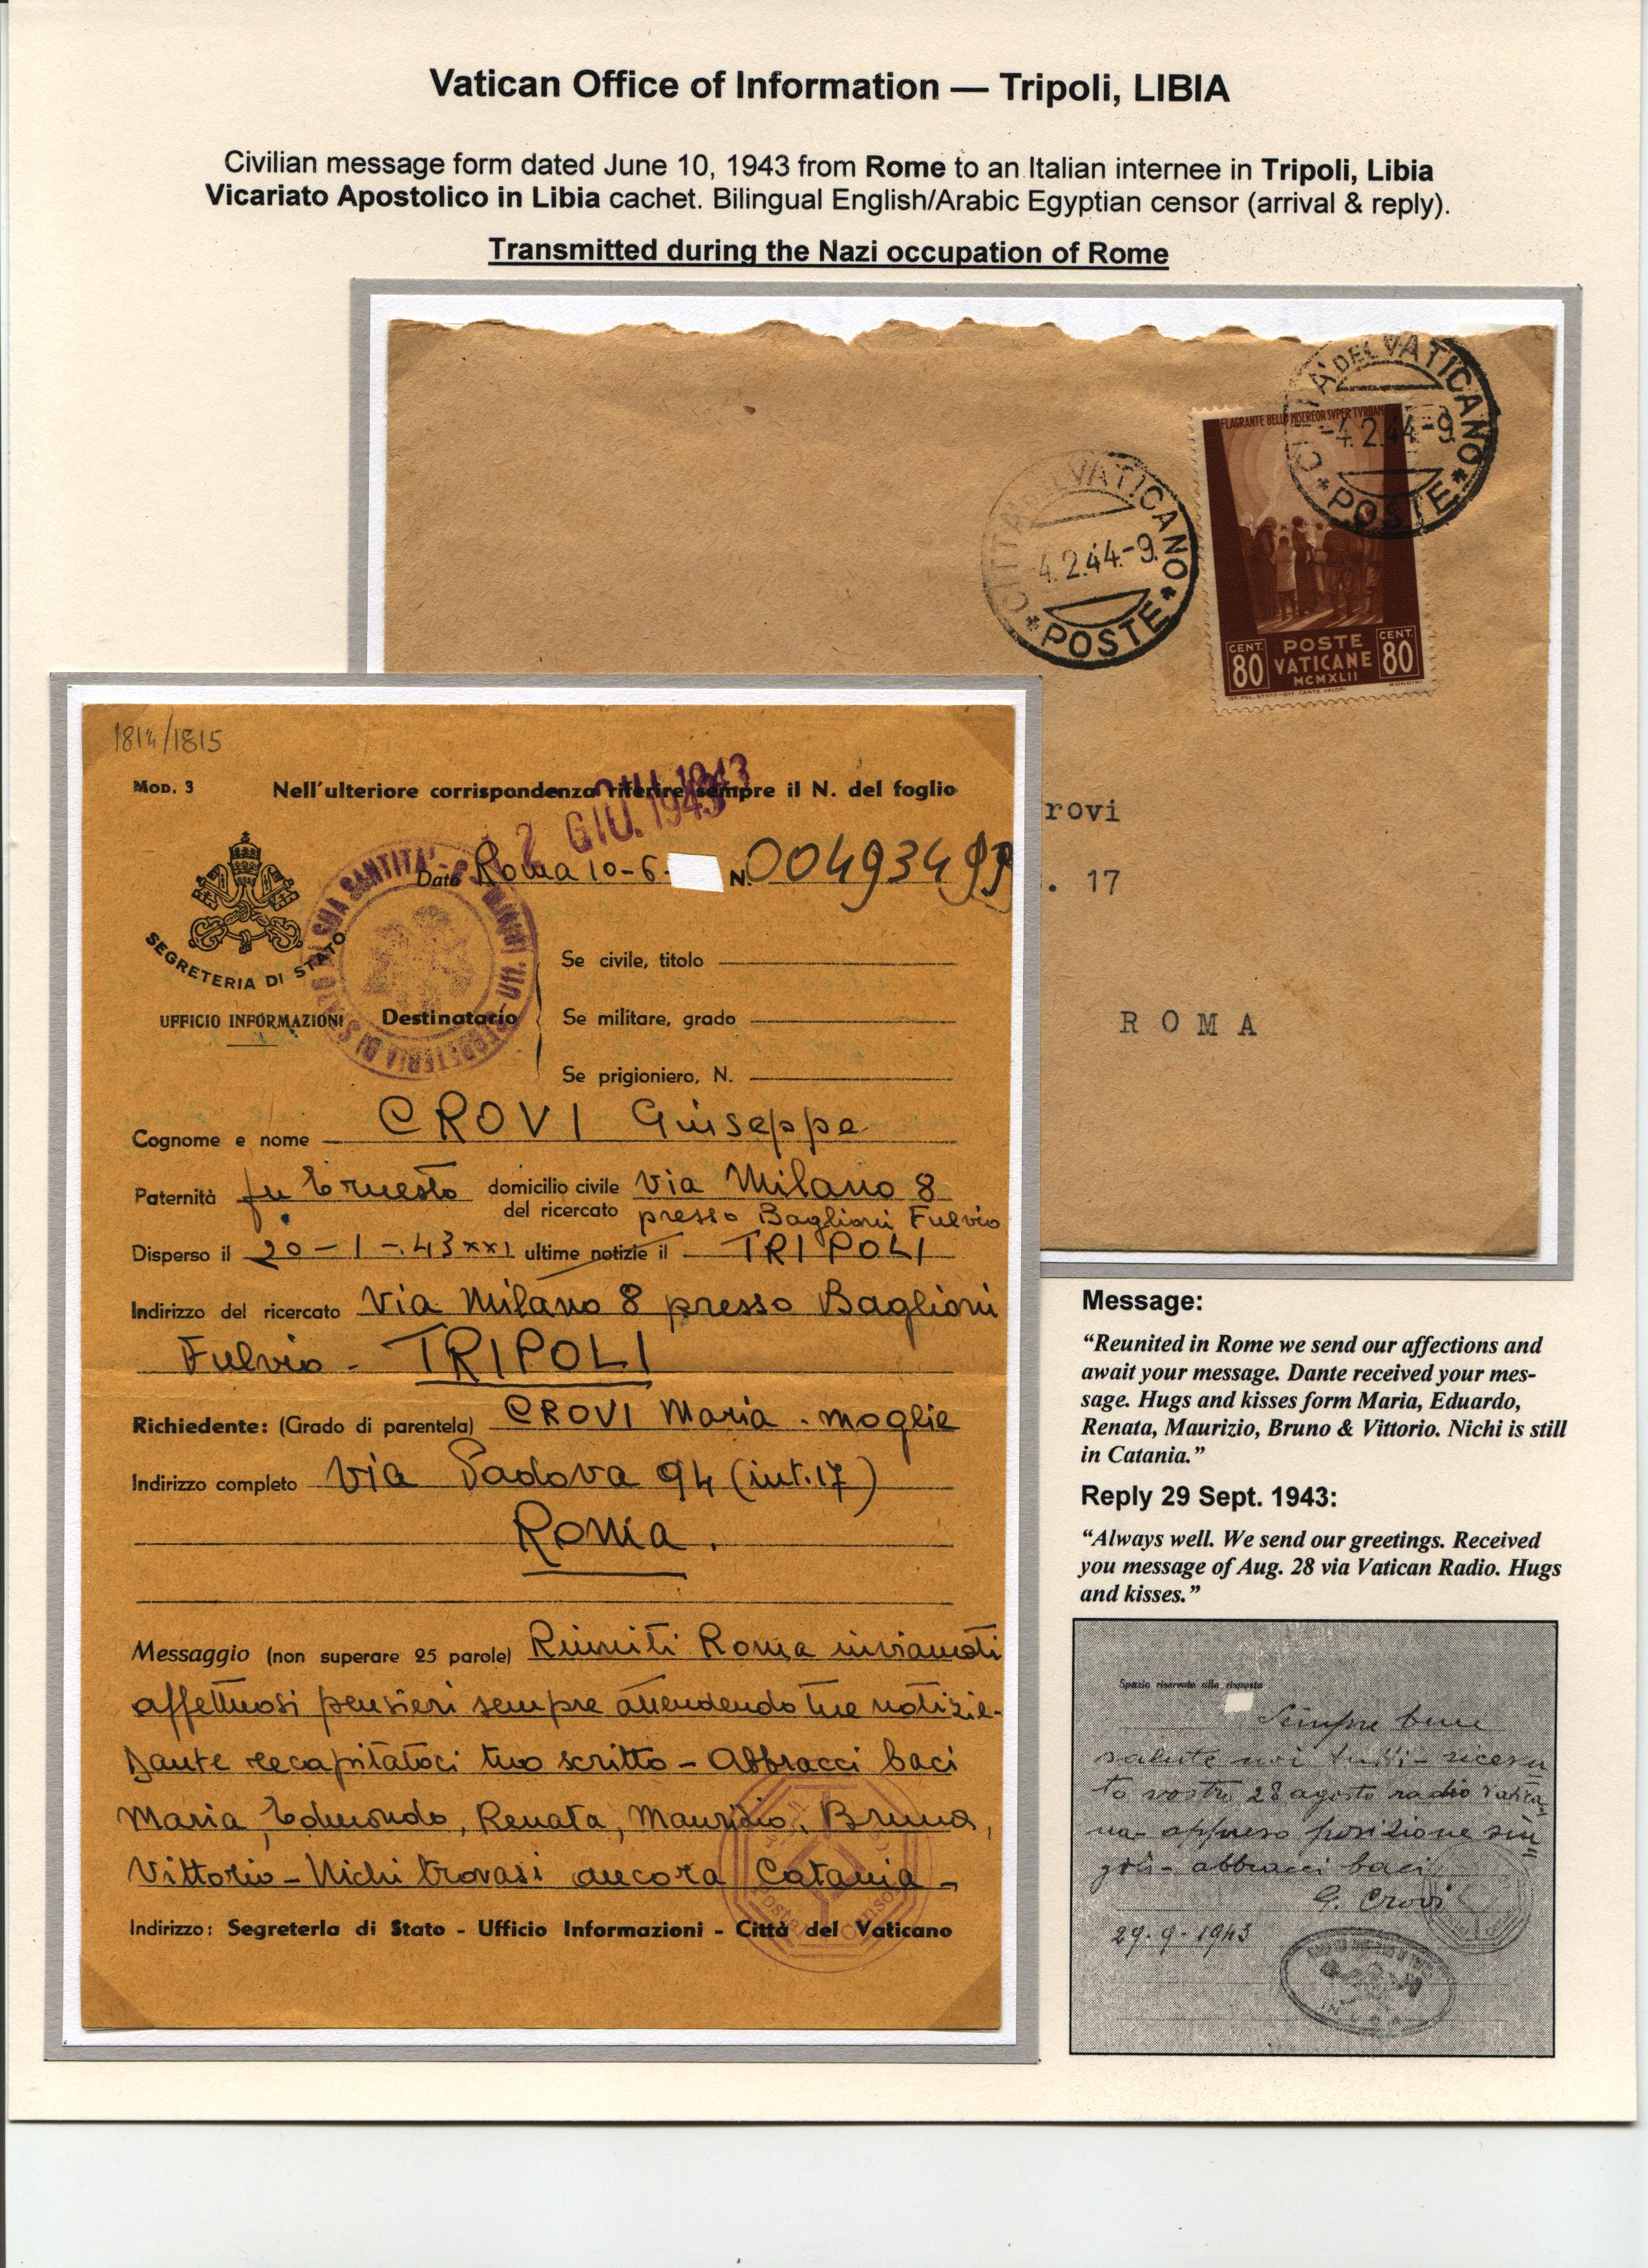 Vatican Office of Information — Tripoli, LIBIA
Civilian message form dated June 10, 1943 from Rome to an Italian internee in Tripoli, Libia
Vicariato Apostolico in Libia cachet. Bilingual English/Arabic Egyptian censor (arrival & reply).
Transmitted during the Nazi occupation of Rome
CITTA' DEL VATICANO
-4.2.44-9
* POSTE *
CITTA' DEL VATICANO
4.2.44-9
* POSTE *
FLAGRANTE BELLO MISEREOR SVPER TVRBAM
CENT. 80
POSTE VATICANE
MCMXLII
CENT. 80
IST. POL. STATO-OFF. CARTE VALORI
RONDINI
rovi
. 17
ROMA
1814/1815
Mod. 3
Nell'ulteriore corrispondenza riferire sempre il N. del foglio
2 GIU. 1943
Data Roma 10-6- N. 00493499
SEGRETERIA DI STATO
UFFICIO INFORMAZIONI
SEGRETERIA DI STATO DI SUA SANTITA'
Destinatario
Se civile, titolo
Se militare, grado
Se prigioniero, N.
Cognome e nome CROVI Giuseppe
Paternità fu Ernesto domicilio civile del ricercato Via Milano 8
presso Baglioni Fulvio
Disperso il 20-1-.43 XXI ultime notizie il TRIPOLI
Indirizzo del ricercato Via Milano 8 presso Baglioni
Fulvio - TRIPOLI
Richiedente: (Grado di parentela) CROVI Maria - moglie
Indirizzo completo Via Padova 94 (int. 17)
Roma.
Messaggio (non superare 25 parole) Riuniti Roma inviamoti
affettuosi pensieri sempre attendendo tue notizie-
Dante recapitatoci tuo scritto - Abbracci baci
Maria, Edmondo, Renata, Maurizio, Bruno,
Vittorio - Nichi trovasi ancora Catania -
Indirizzo: Segreteria di Stato - Ufficio Informazioni - Città del Vaticano
Postal Censor
Message:
“Reunited in Rome we send our affections and
await your message. Dante received your mes-
sage. Hugs and kisses form Maria, Eduardo,
Renata, Maurizio, Bruno & Vittorio. Nichi is still
in Catania.”
Reply 29 Sept. 1943:
“Always well. We send our greetings. Received
you message of Aug. 28 via Vatican Radio. Hugs
and kisses.”
Spazio riservato alla risposta
Sempre bene
salute noi tutti - ricevu
to vostro 28 agosto radio Vatica
na - appreso posizione sin
goli - abbracci baci
G. Crovi
29-9-1943